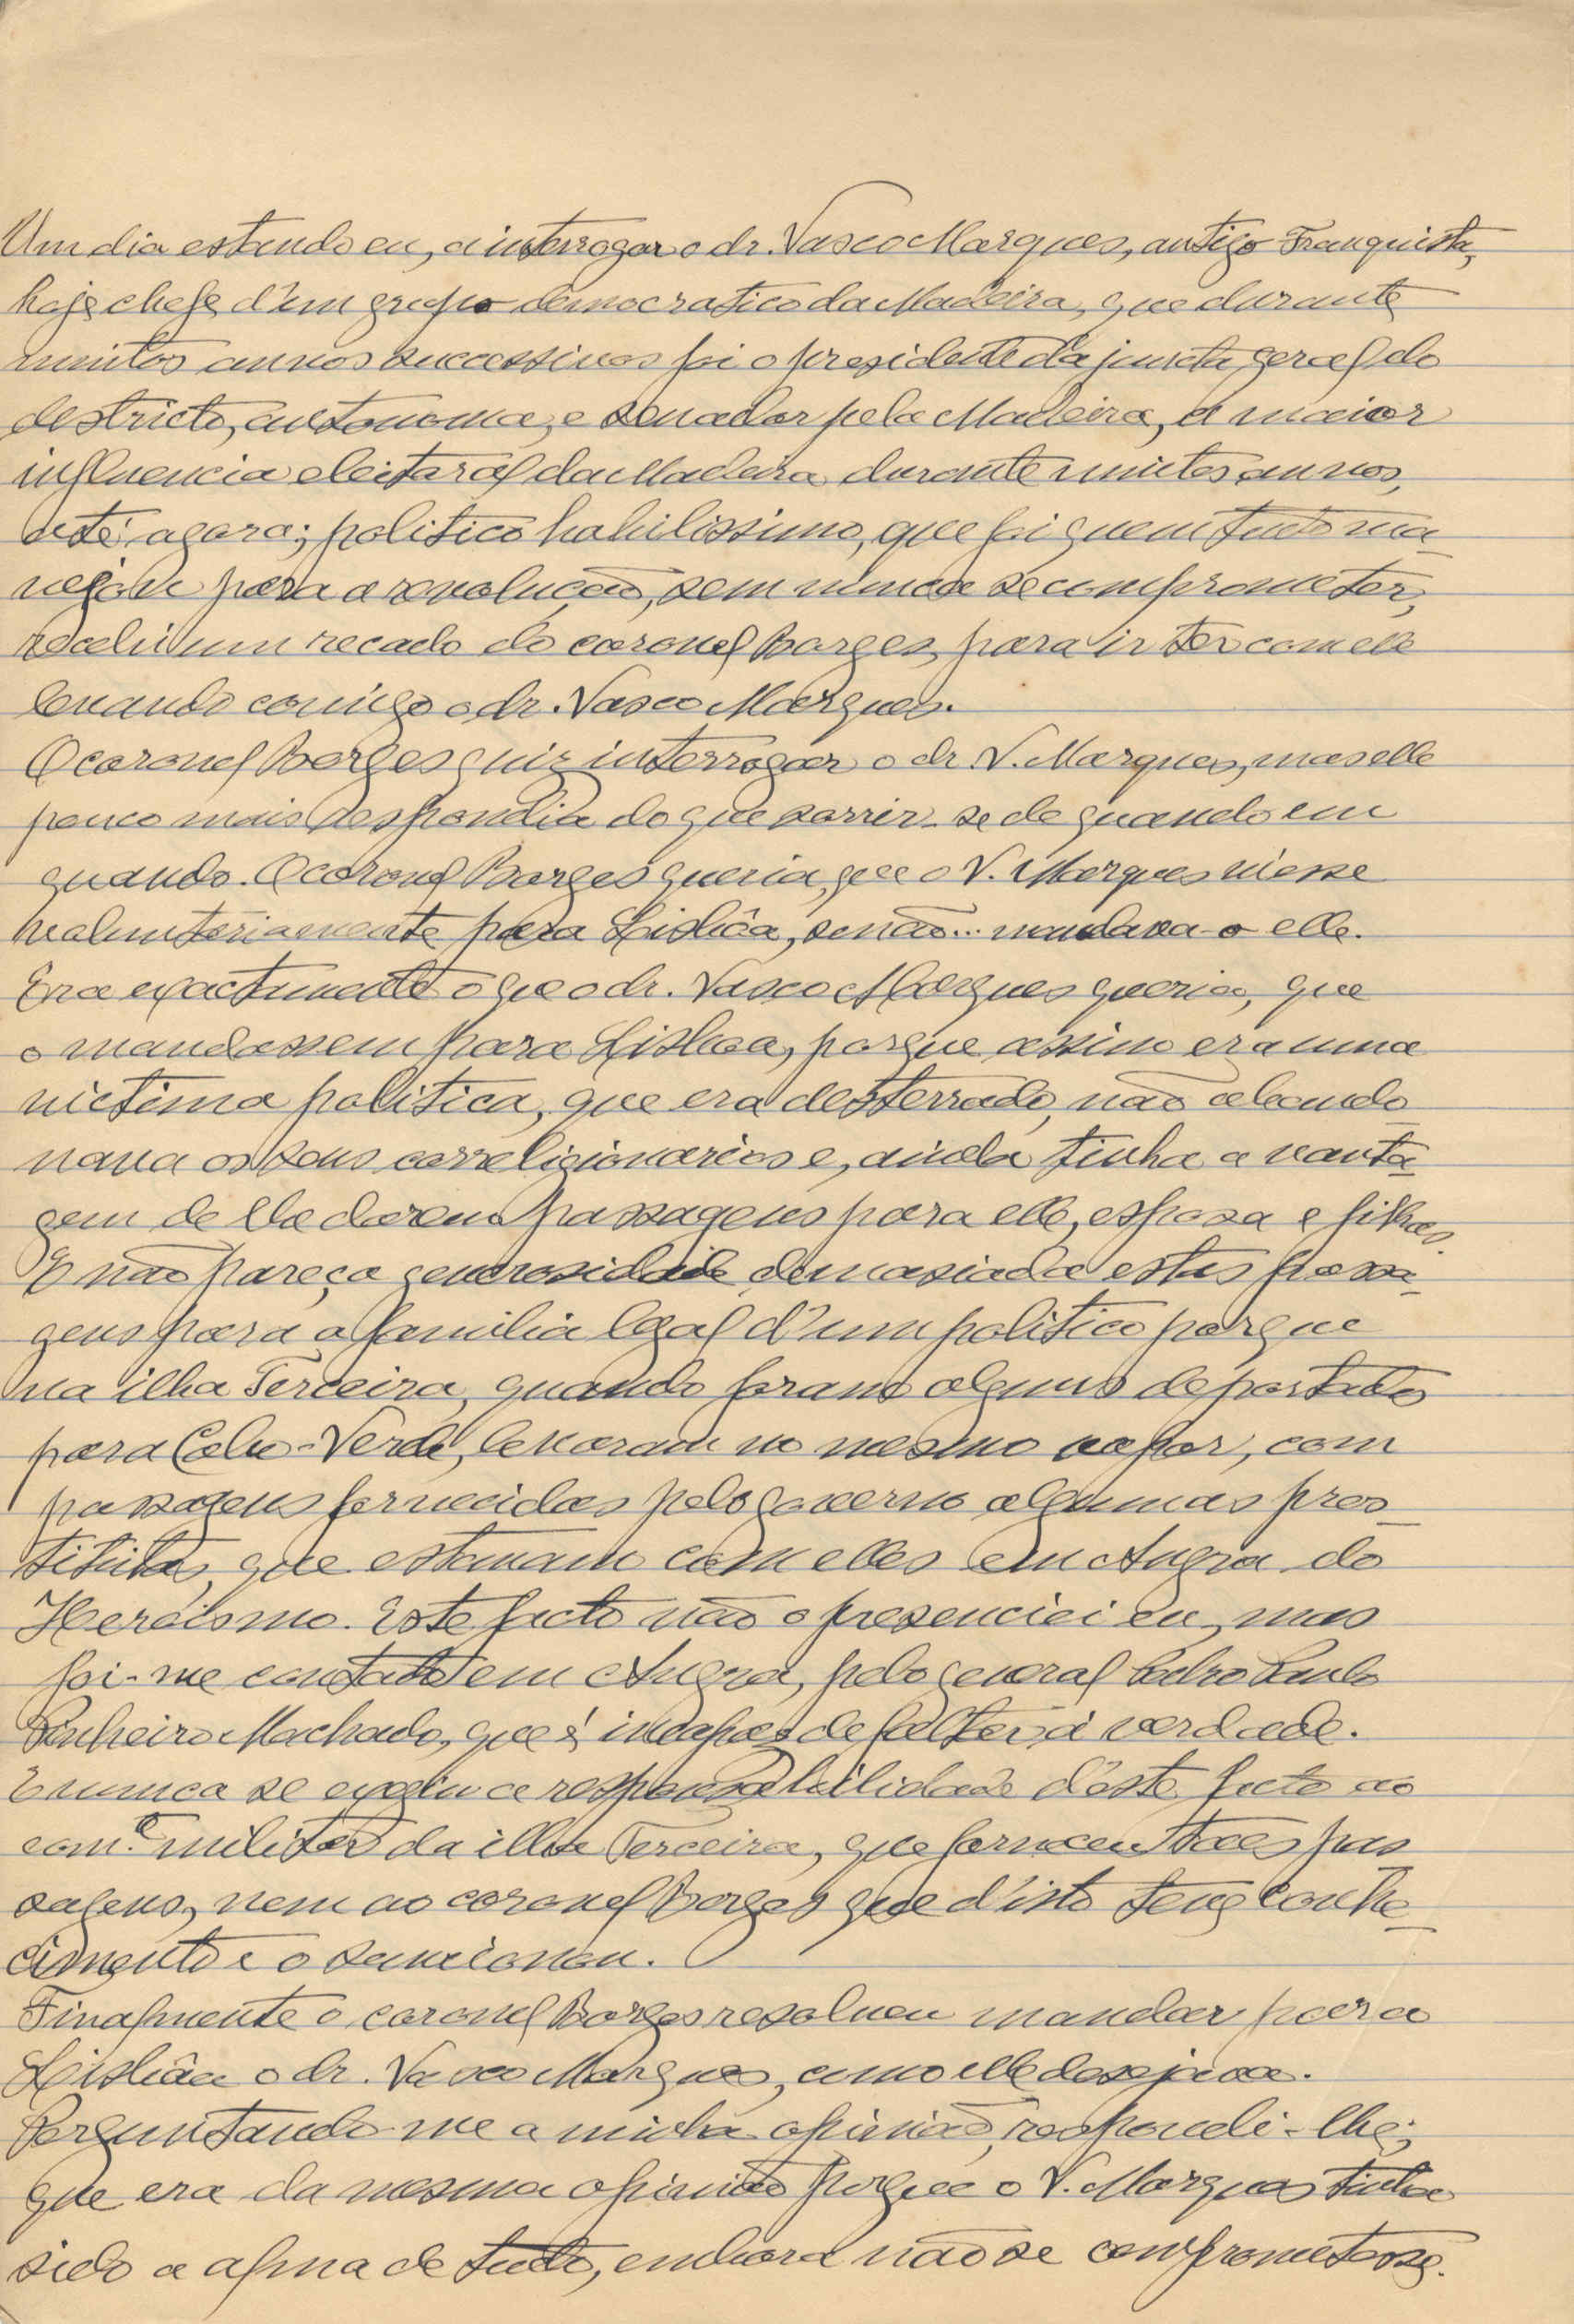 Um dia estando eu, a interrogar o dr. Vasco Marques, antigo Franquista,
hoje chefe d'um grupo democratico da Madeira, que durante
muitos annos successivos foi o presidente da juncta geral do
destricto, autonoma, e senador pela Madeira, a maior
influencia eleitoral da Madeira durante muitos annos,
até agora; politico habilissimo, que foi quem tudo ma-
nejou para a revolução, sem nunca se comprometer,
recebi um recado do coronel Borges, para ir ter com elle
levando comigo o dr. Vasco Marques.
O coronel Borges quiz interrogar o dr. V. Marques, mas elle
pouco mais respondia do que sorrir-se de quando em
quando. O coronel Borges queria, que o V. Marques viesse
voluntariamente para Lisbôa, senão... mandava-o elle.
Era exactamente o que o dr. Vasco Marques queria, que
o mandassem para Lisboa, porque assim era uma
victima politica, que era desterrado, não abando-
nava os seus correligionarios e, ainda tinha a vanta-
gem de lhe darem passagens para elle, esposa e filhas.
E não pareça generosidade demasiada estas passa-
gens para a familia legal d'um politico porque
na ilha Terceira, quando foram alguns deportados
para Cabo-Verde, levaram no mesmo vapor, com
passagens fornecidas pelo governo algumas pros-
titutas, que estavam com elles em Angra do
Heroismo. Este facto não o presenciei eu, mas
foi-me contado em Angra, pelo general Pedro Paulo
Pinheiro Machado, que é incapaz de faltar á verdade.
E nunca se exigiu a responsabilidade d'este facto ao
com.e militar da ilha Terceira, que forneceu taes pas
sagens, nem ao coronel Borges que d'isto teve conhe-
cimento e o sancionou.
Finalmente o coronel Borges resolveu mandar para
Lisbôa o dr. Vasco Marques, como elle desejava.
Perguntando-me a minha opinião, respondi-lhe;
que era da mesma opinião porque o V. Marques tinha
sido a alma de tudo, embora não se comprometesse.